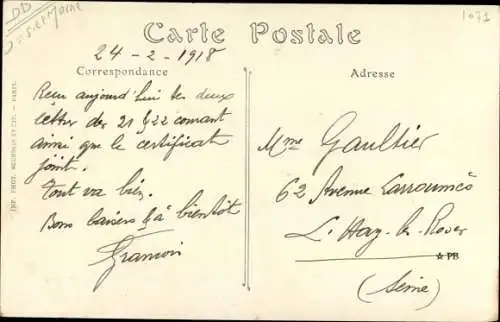 DD
S. et Marne
1071
Carte Postale
24-2-1918
Correspondance
Adresse
Reçu aujourd'hui tes deux
lettres des 21 & 22 courant
ainsi que le certificat
joint.
Tout va bien.
Bons baisers & à bientôt
Mme Gaultier
62 Avenue
L'Hay-les-Roses
(Seine)
PB
IMP. PHOT. ET CIE. — PARIS